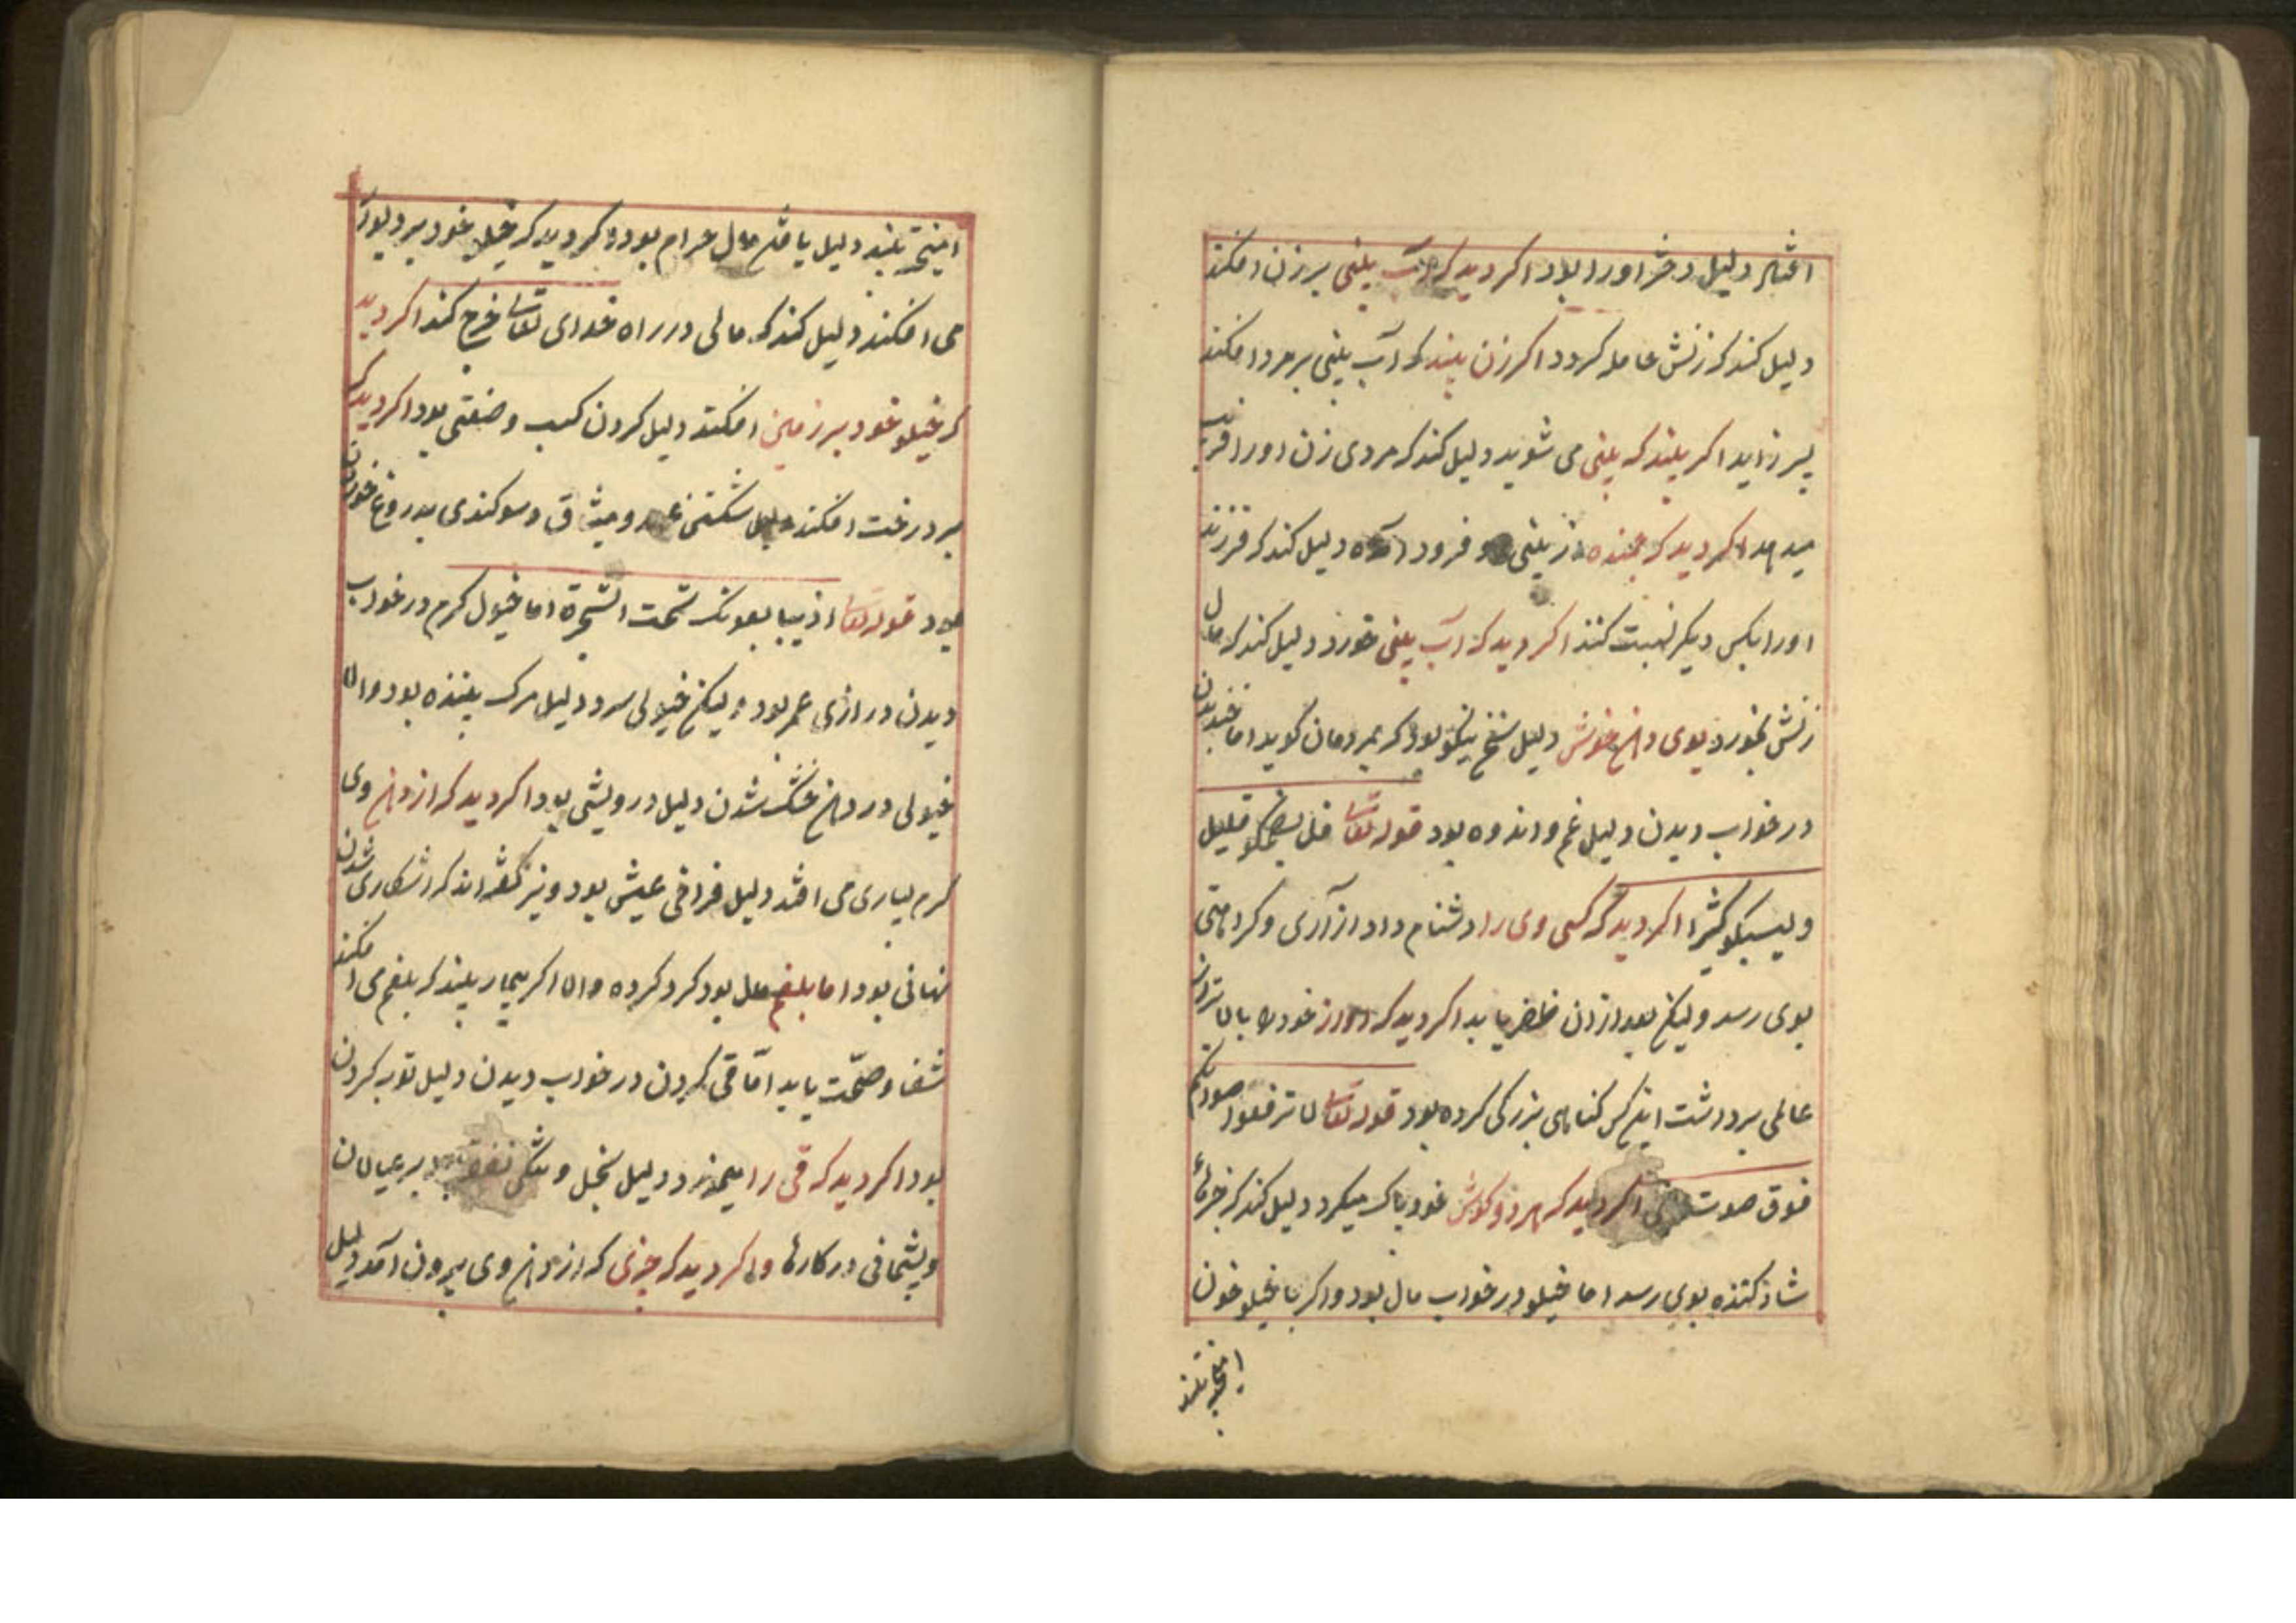 دلیل دختر اورا بود اکر دید که آب بلنی بر زن افکند
دلیل کند که زنش حامله کردد اکر زن بیند که آب بینی بر مرد افکند
پسر زاید اکر بیند که بینی می شوید دلیل کند که مردی زن اورا فریب
میدهد اکر دید که جنبنده از بینی او فرود آمده دلیل کند که فرزند
اورا بکس دیکر نسبت کنند اکر دید که آب بینی خورد دلیل کند که مال
زنش بخورد بوی دهن خوش دلیل سخن نیکو بود که بمردمان کوید اما خندیدن
در خواب دیدن دلیل غم و اندوه بود قوله تعالی فلیضحکو قلیل
ولیبکو کثیرا اکر دید که کسی وی را دشنام داد ازآری و کراهتی
بوی رسد ولیکن بعد ازان ظفر یابد اکر دید که آواز خود را بالاتر از آن
عالمی برداشت اینکس کناهای بزرکی کرده بود قوله تعالی لا ترفعوا اصواتکم
فوق صوت النبی اکر دید که هر دو کوش خود پاک میکرد دلیل کند که خبرهای
شاد کننده بوی رسد اما خیلو در خواب مال بود و اکر با خیلو خون
امیخته بیند
امیخته بیند دلیل یافتن مال حرام بود و اکر دید که خیلو خود بر دیوار
می افکند دلیل کند که مالی در راه خدای تعالی خرج کند اکر دید
که خیلو خود بر زمین افکند دلیل کردن کسب و ضیعتی بود اکر دید که
بر درخت افکند دلیل شکستن عهد و میثاق و سوکندی بدروغ خوردن
بود قوله تعالی اذ یبایعونک تحت الشجرة اما خیول کرم در خواب
دیدن درازی عمر بود ولیکن خیولی سرد دلیل مرک بیننده بود و الا
خیولی در دهن خشک شدن دلیل درویشی بود اکر دید که از دهن وی
کرم بسیاری می افتد دلیل فراخی عیش بود و نیز کفته اند که اشکاری شدن
نهانی بود اما بلغم مال بود کرد کرده و الا اکر بیمار بیند که بلغم می افکند
شفا و صحّت یابد امّا قی کردن در خواب دیدن دلیل توبه کردن
بود اکر دید که قی را میخورد دلیل بخل و تنکی نفقه بود بر عیالان
و پشیمانی در کارها و اکر دید که چیزی که از دهن وی بیرون آمد دلیل